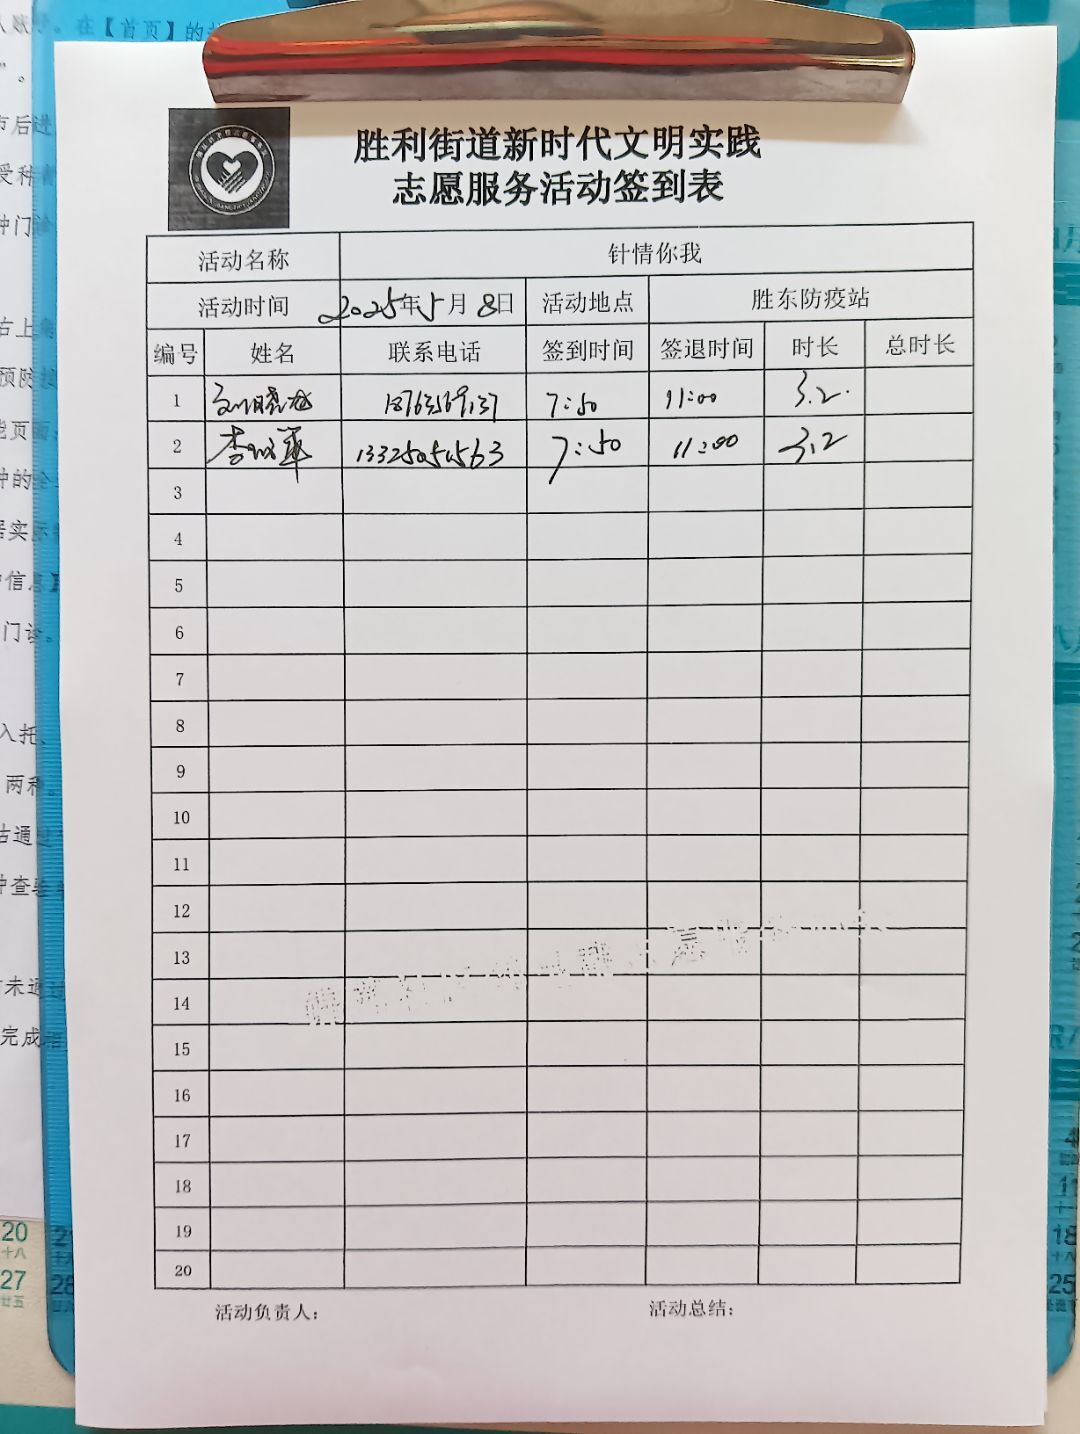 胜利街道新时代文明实践
志愿服务活动签到表
活动名称 针情你我
活动时间 2025年5月8日 活动地点 胜东防疫站
编号 姓名 联系电话 签到时间 签退时间 时长 总时长
1 18763569137 7:50 11:00 3.2.
2 李 军 13325054563 7:50 11:00 3.2
3
4
5
6
7
8
9
10
11
12
13
14
15
16
17
18
19
20
活动负责人: 活动总结: